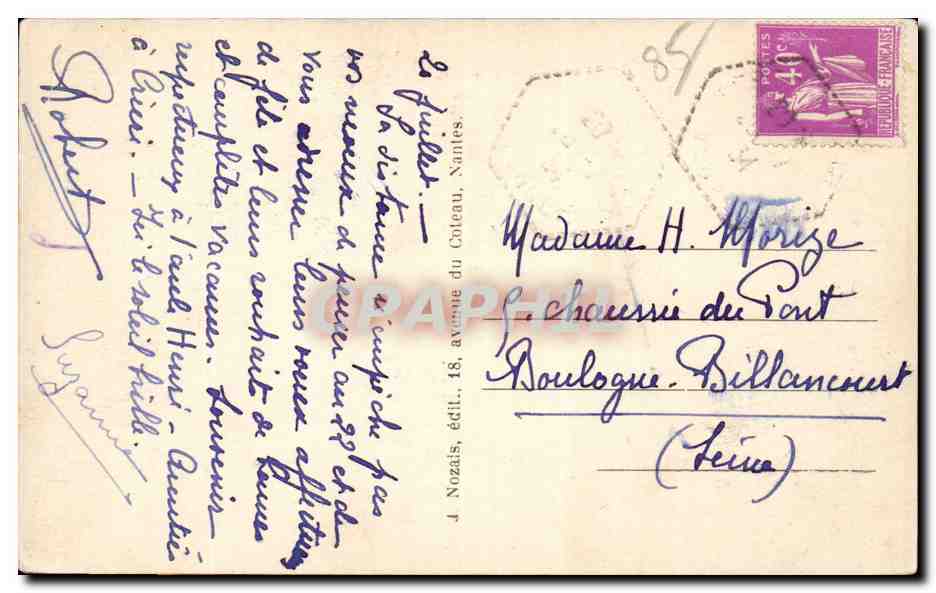 20 Juillet. —
La distance n'empêche pas
vos neveux de penser au 22 et de
vous adresser leurs voeux affectueux
de fête et leurs souhaits de bonnes
et complètes vacances. Souvenir
respectueux à l'oncle Henri. Amitiés
à Cricri. — Ici le soleil brille.
Robert
Suzanne
J Nozais, édit., 18, avenue du Coteau, Nantes.
85
POSTES
40c
REPUBLIQUE FRANÇAISE
PAIX
Madame H. Morize
5. chaussée du Pont
Boulogne-Billancourt
(Seine)
CPAPHIL